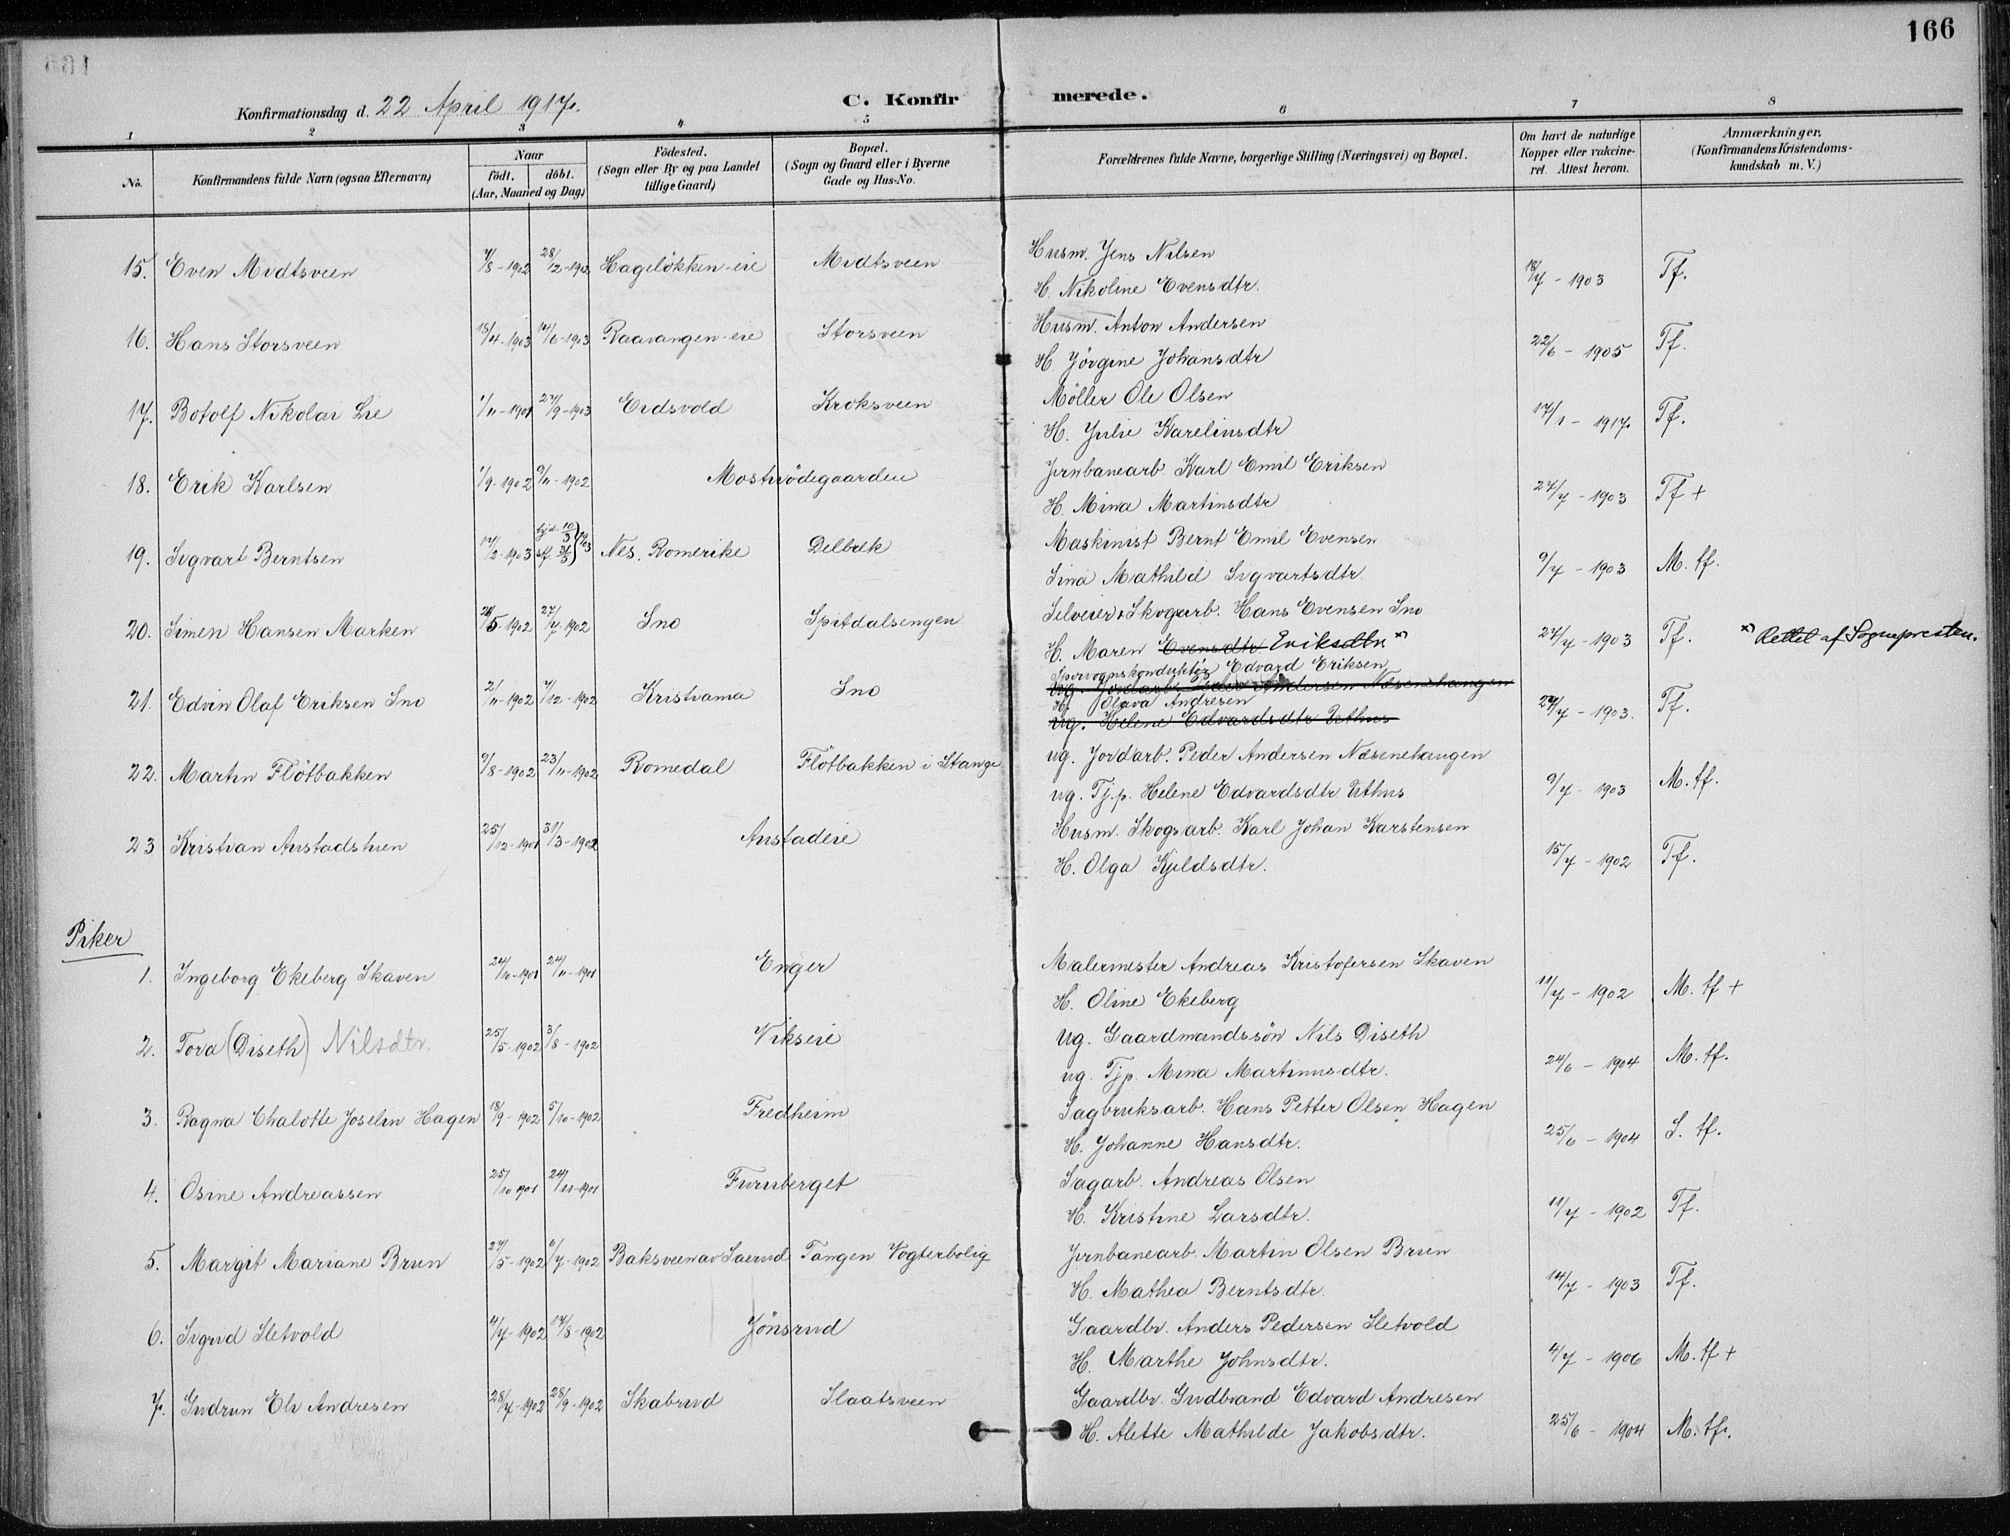 166
Konfirmationsdag d. 22 April 1917.
C. Konfirmerede.
1 2 3 4 5 6 7 8
No. Konfirmandens fulde Navn (ogsaa Efternavn) Naar födt. döbt. (Aar, Maaned og Dag) Födested. (Sogn eller By og paa Landet tillige Gaard) Bopæl. (Sogn og Gaard eller i Byerne Gade og Hus-No. Forældrenes fulde Navne, borgerlige Stilling (Næringsvei) og Bopæl. Om havt de naturlige Kopper eller vakcineret. Attest herom. Anmærkninger. (Konfirmandens Kristendomskundskab m. V.)
15. Even Midtsveen 7/8-1902 28/12-1902 Hagelökken eie Midtsveen Husm. Jens Nilsen
H. Nikoline Evensdtr. 18/7-1903 Tf.
16. Hans Storsveen 15/4-1903 14/6-1903 Raavangen eie Storsveen Husm. Anton Andersen
H Jörgine Johansdtr 22/6-1905 Tf.
17. Botolf Nikolai Lie 1/11-1901 27/9-1903 Eidsvold Kroksveen Möller Ole Olsen
H. Julie Karelinsdtr 17/1-1917 Tf.
18. Erik Karlsen 1/9-1902 9/11-1902 Mostuödegaarden Jernbanearb. Karl Emil Eriksen
H. Mina Martinsdtr 27/7-1903 Tf +
19. Sigvart Berntsen 17/2-1903 hjd. 10/3 sf. 31/5 } 1903 Nes, Romerike Delbæk Maskinist Bernt Emil Evensen
Lina Mathild Sigvartsdtr 9/7-1903 M. tf.
20. Simen Hansen Marken 26/5-1902 27/7-1902 Sno Spitdalsengen Selveier Skogarb. Hans Evensen Sno
H. Maren Evensdtr Eriksdtr. x) 27/7-1903 Tf. x) Rettet af Sognepresten.
21. Edvin Olaf Eriksen Sno 2/11-1902 7/12-1902 Kristiania Sno Sporvognskonduktör Edvard Eriksen
ug. Jordarb. Peder Andersen Næsenehaugen
H. Olava Andresen
ug. Helene Edvardsdtr Uthus 27/7-1903. Tf.
22. Martin Flötbakken 9/8-1902 23/11-1902 Romedal Flötbakken i Stange ug. Jordarb. Peder Andersen Næsenehaugen
ug. Tj.p. Helene Edvardsdtr Uthus 9/7-1903 M. tf.
23 Kristian Anstadstuen 25/12-1901 31/3-1902 Anstadeie Husm. Skogsarb. Karl Johan Karstensen
H. Olga Kjeldsdtr. 15/7-1902 Tf.
Piker
1. Ingeborg Ekeberg Skaven 24/10-1901 24/11-1901 Enger Malermester Andreas Kristofersen Skaven
H. Oline Ekeberg 11/7-1902 M. tf +
2. Tora (Diseth) Nilsdtr. 25/5-1902 3/8-1902 Vikseie ug. Gaardmandssön Nils Diseth
ug. Tjp. Mina Martinusdtr. 24/6-1904 M. tf.
3. Ragna Chalotte Joselin Hagen 18/9-1902 5/10-1902 Fredheim Sagbruksarb. Hans Petter Olsen Hagen
H. Johanne Hansdtr. 25/6-1904 S. tf.
4. Osine Andreassen 25/10 1901 24/11-1901 Furuberget Sagarb. Andreas Olsen
H. Kristine Larsdtr. 11/7-1902 Tf.
5. Margit Mariane Brun 27/5-1902 6/7-1902 Baksveen av Saerud Tangen Vogterbolig Jernbanearb. Martin Olsen Brun
H. Mathea Berntsdtr. 14/7-1903 Tf.
6. Sigrid Sletvold 4/7-1902 17/8-1902 Jönsrud Gaardbr. Anders Pedersen Sletvold
H. Marthe Johnsdtr. 4/7-1906 M. tf +
7. Gudrun Eli Andresen 28/7-1902 28/9-1902 Skabrud Slaatsveen Gaardbr. Gudbrand Edvard Andresen
H. Alette Mathilde Jakobsdtr. 25/6-1904 M. tf.